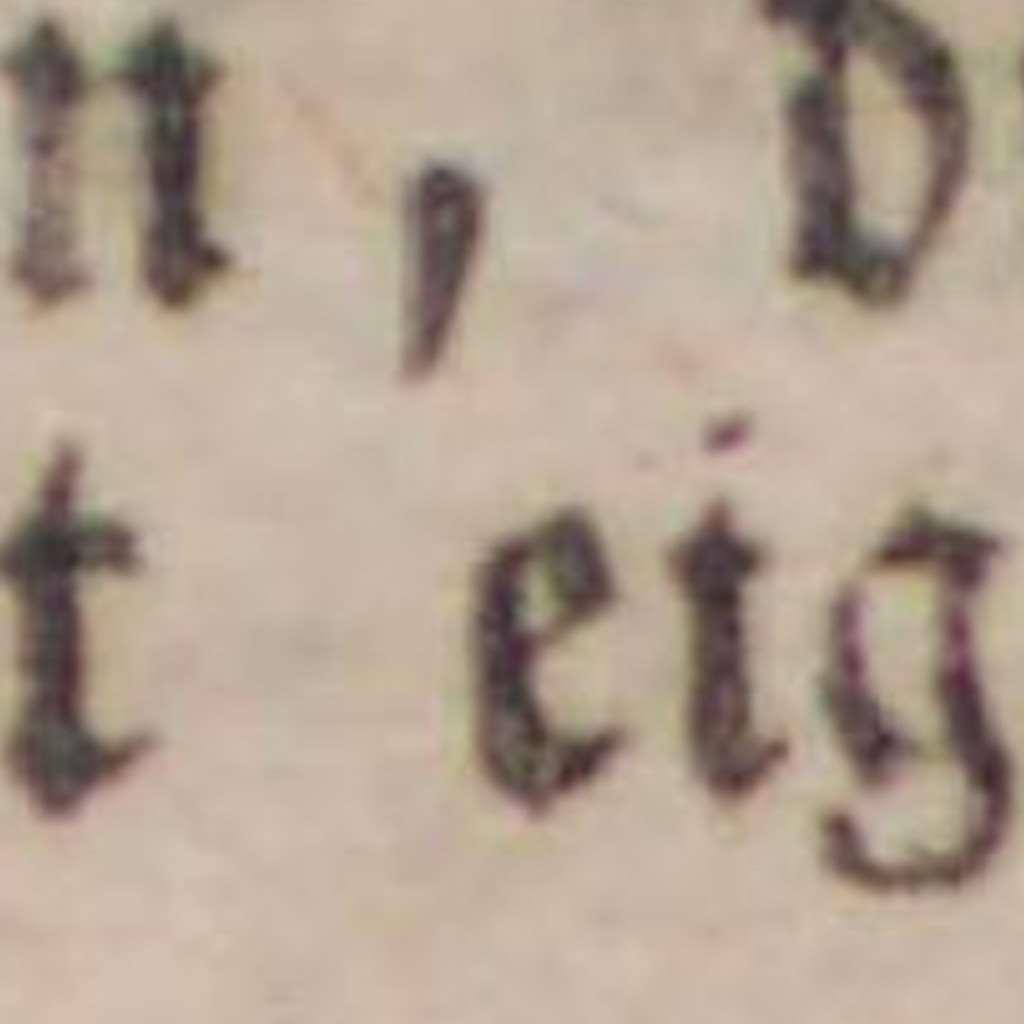 n, D
t eig